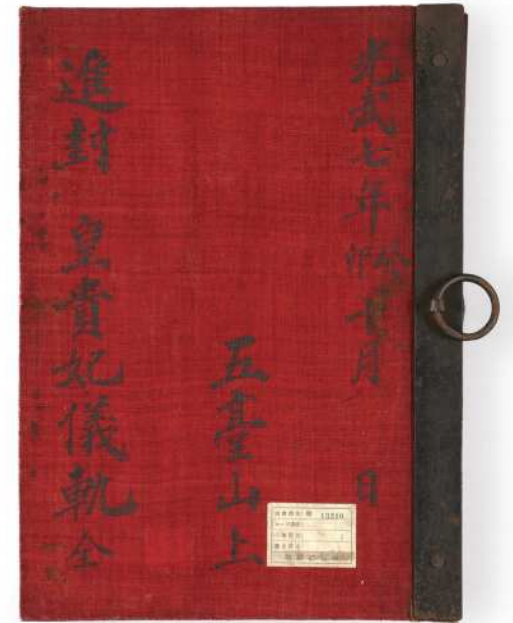 光武七年癸卯十一月 日
五臺山上
進封 皇貴妃儀軌 全
13210